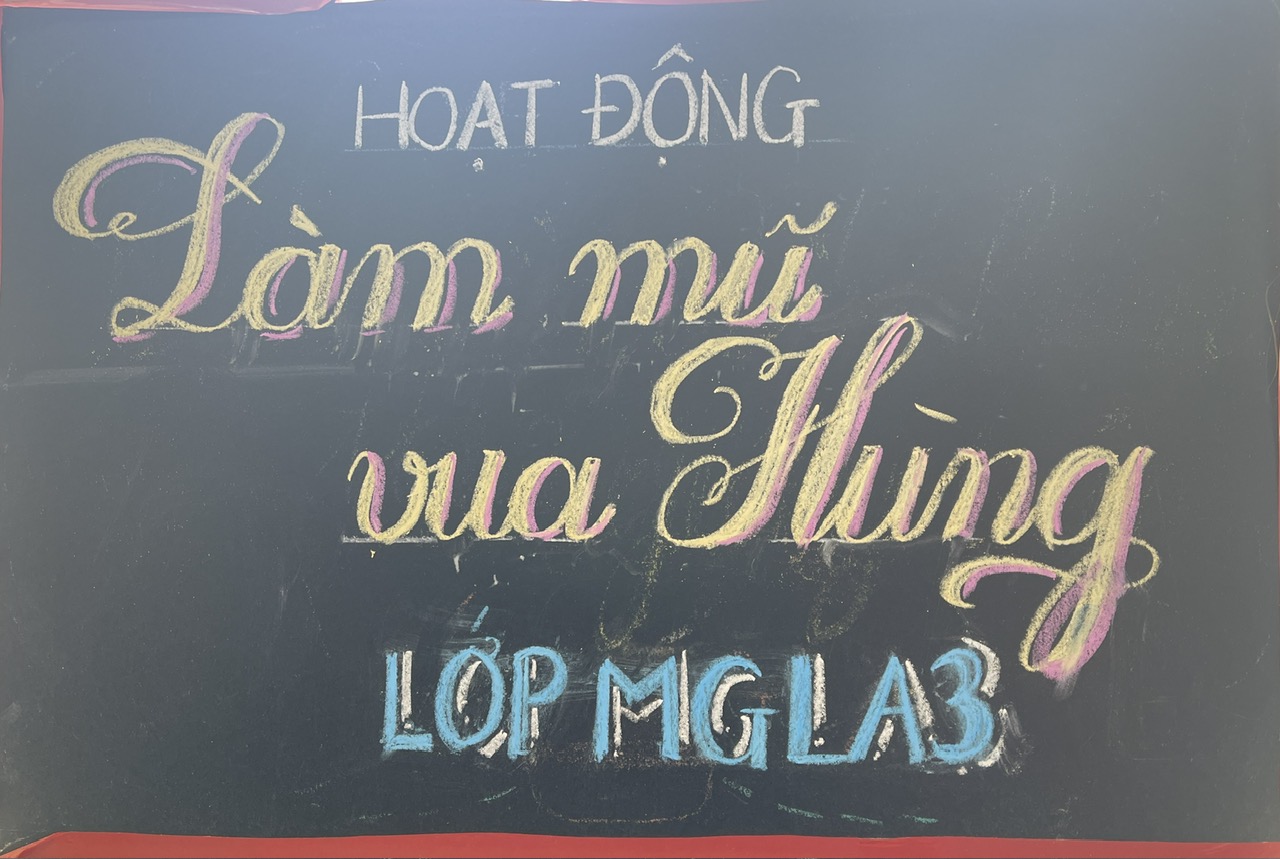 HOẠT ĐỘNG
Làm mũ
vua Hùng
LỚP MGLA3